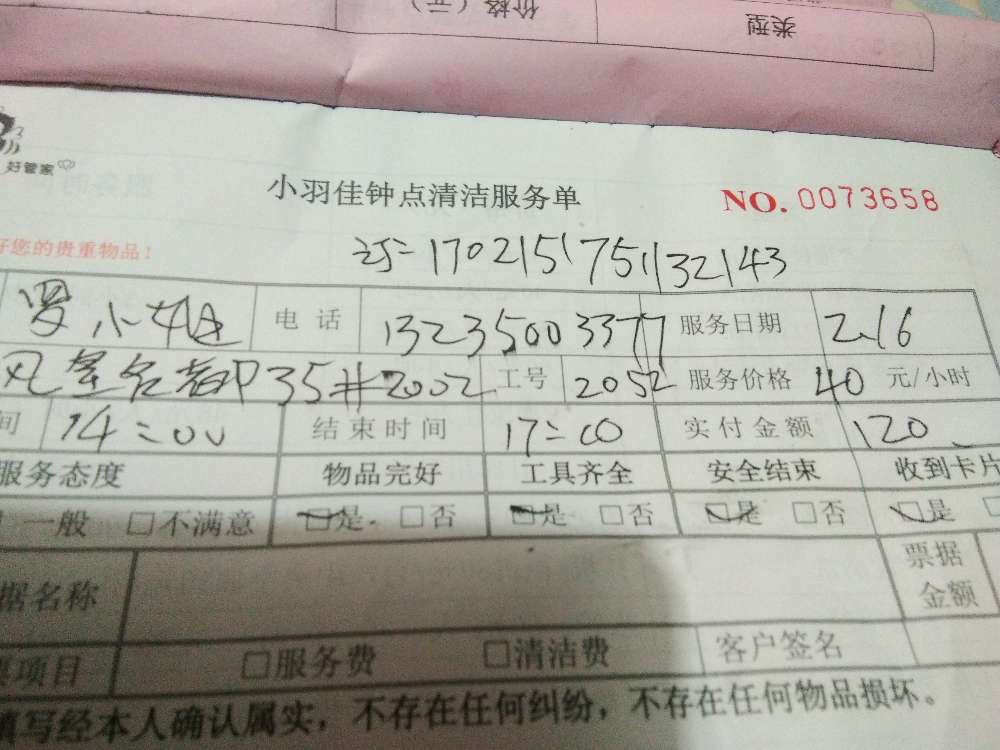 价格（元） 类型
好管家
小羽佳钟点清洁服务单 NO. 0073658
好您的贵重物品！
1702151751132143
罗小姐 电话 13235003377 服务日期 2.16
35#2002 工号 2052 服务价格 40 元/小时
间 14:00 结束时间 17:00 实付金额 120
服务态度 物品完好 工具齐全 安全结束 收到卡片
一般 □不满意 □是 □否 □是 □否 □是 □否 □是
据名称 票据金额
票项目 □服务费 □清洁费 客户签名
填写经本人确认属实，不存在任何纠纷，不存在任何物品损坏。